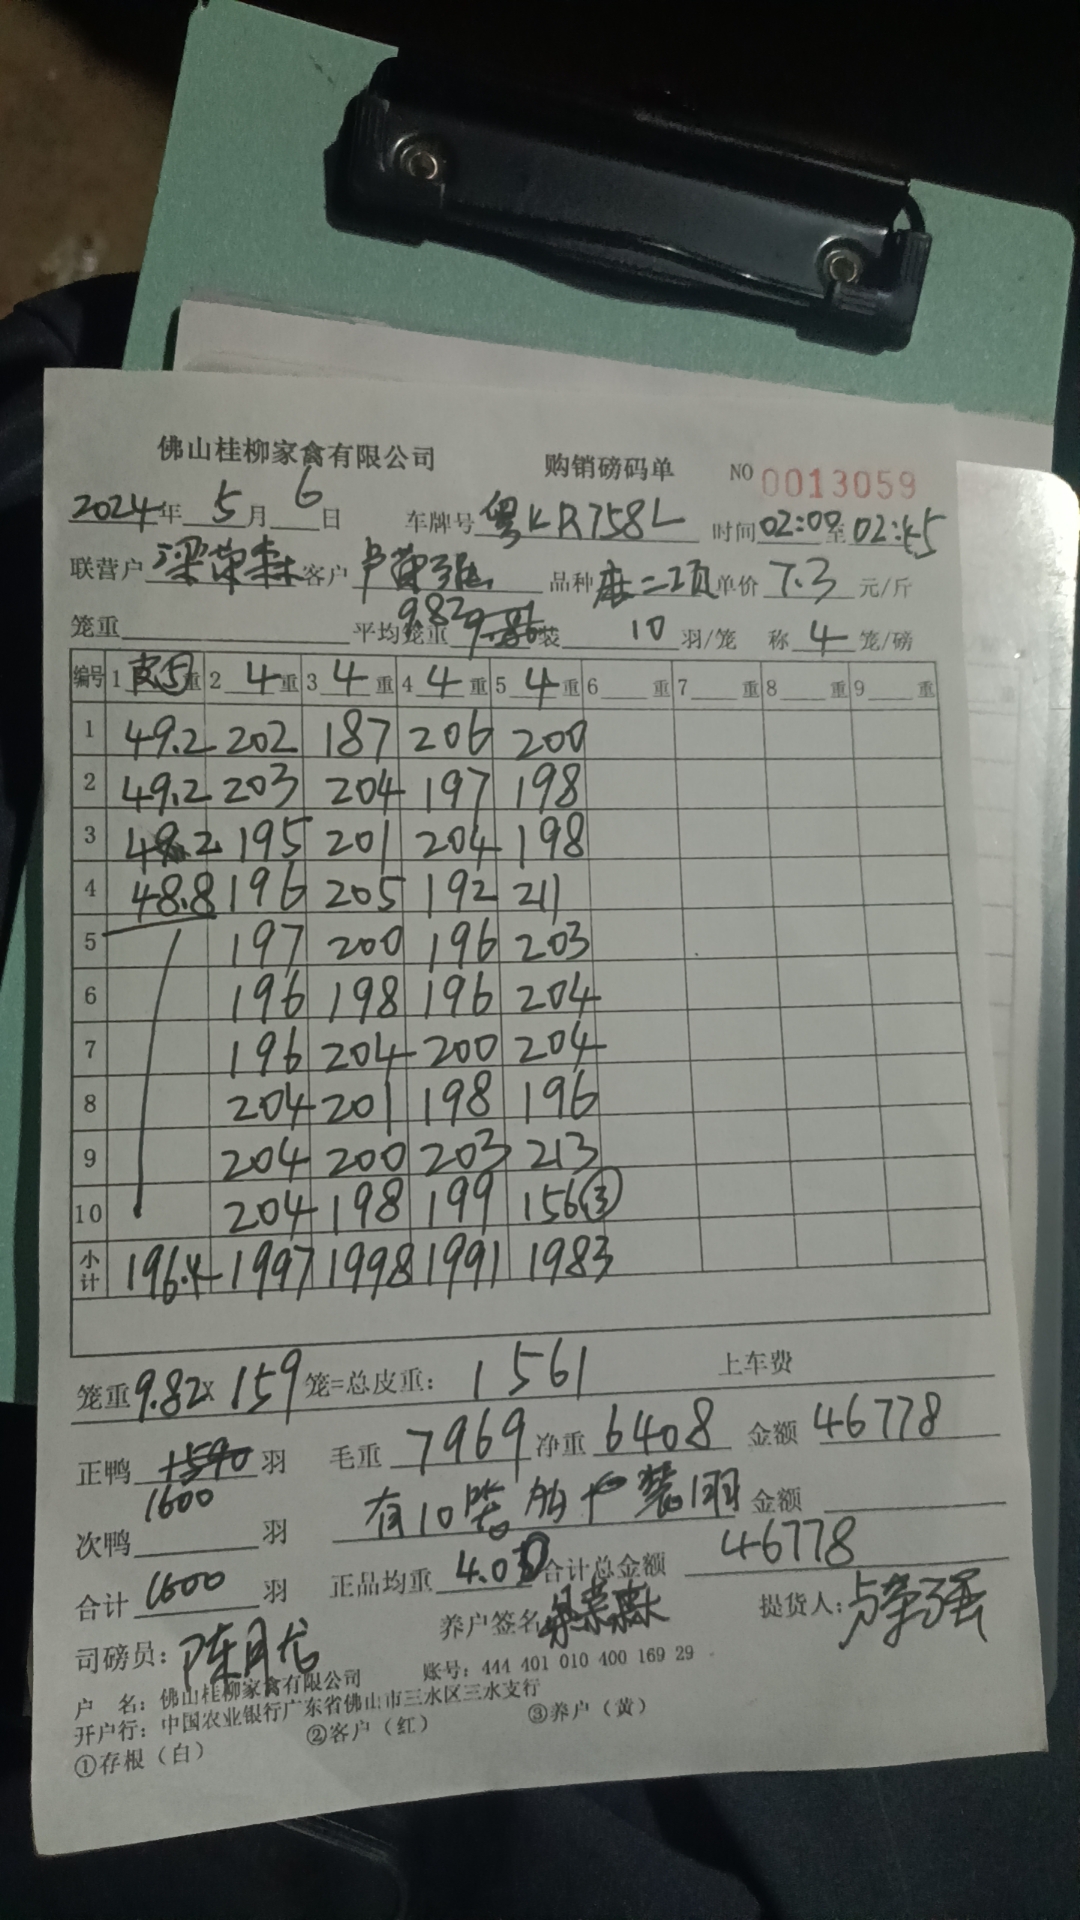 佛山桂柳家禽有限公司 购销磅码单 NO 0013059
2024年 5月 6日 车牌号 粤KR758L 时间 02:00至02:45
联营户 梁荣森 客户 卢荣强 品种 麻二项 单价 7.3 元/斤
笼重 平均笼重 9.82 装 10 羽/笼 称 4 笼/磅
编号 1 皮⑤重 2 4重 3 4重 4 4重 5 4重 6 重 7 重 8 重 9 重
1 49.2 202 187 206 200
2 49.2 203 204 197 198
3 49.2 195 201 204 198
4 48.8 196 205 192 211
5 197 200 196 203
6 196 198 196 204
7 196 204 200 204
8 204 201 198 196
9 204 200 203 213
10 204 198 199 156③
小计 196.4 1997 1998 1991 1983
笼重 9.82× 159 笼=总皮重: 1561 上车费
正鸭 1590 羽 毛重 7969 净重 6408 金额 46778
1600
次鸭 羽 有10笼 装11羽 金额
合计 1600 羽 正品均重 4.0 合计总金额 46778
司磅员: 陈月龙 养户签名 梁荣森 提货人: 卢荣强
户 名: 佛山桂柳家禽有限公司 账号: 444 401 010 400 169 29
开户行: 中国农业银行广东省佛山市三水区三水支行
①存根(白) ②客户(红) ③养户(黄)